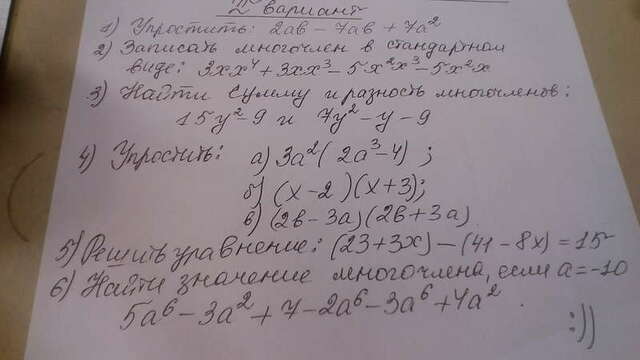 2 вариант
1) Упростить: 2ав - 7ав + 7а²
2) Записать многочлен в стандартном
виде: 3хх⁴ + 3хх³ - 5х²х³ - 5х²х
3) Найти сумму и разность многочленов:
15у² - 9 и 7у² - у - 9
4) Упростить: а) 3а²(2а³ - 4);
б) (х - 2)(х + 3);
в) (2в - 3а)(2в + 3а)
5) Решить уравнение: (23 + 3х) - (41 - 8х) = 15
6) Найти значение многочлена, если а = -10
5а⁶ - 3а² + 7 - 2а⁶ - 3а⁶ + 4а².
:))